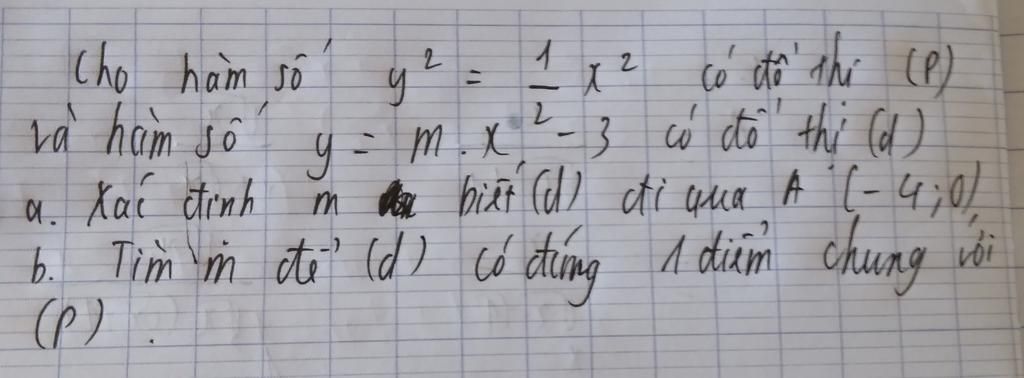 Cho hàm số y² = 1/2 x² có đồ thi (P)
và hàm số y = m . x² - 3 có đồ thi (d)
a. Xác định m biết (d) đi qua A (-4;0)
b. Tìm m để (d) có đúng 1 điểm chung với
(P) .